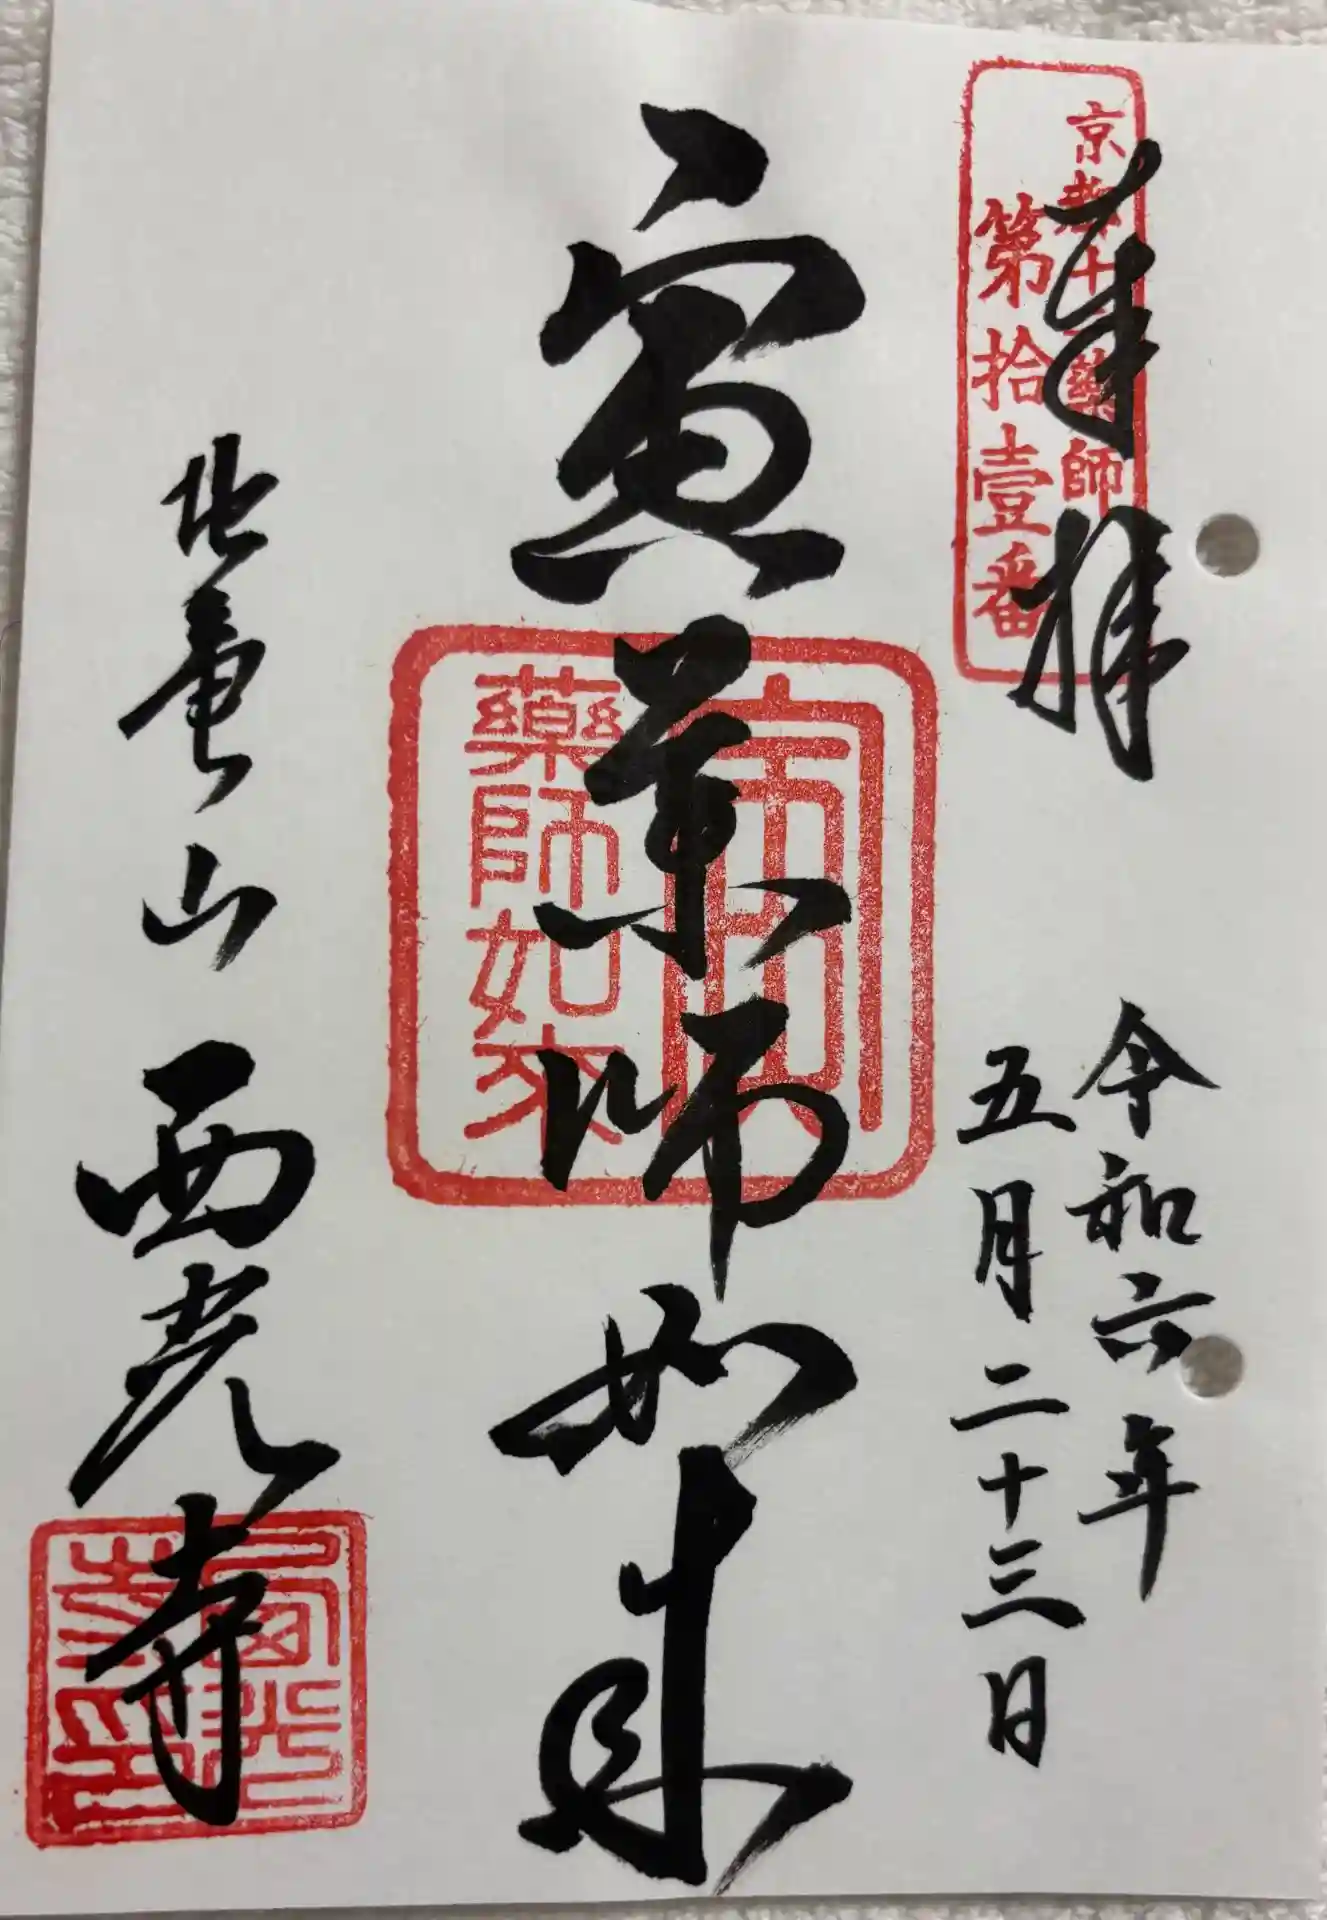 京都十二藥師
第拾壹番
奉拝
令和六年
五月二十三日
寅薬師如来
寅
藥師如來
山 西光寺
西光
寺印